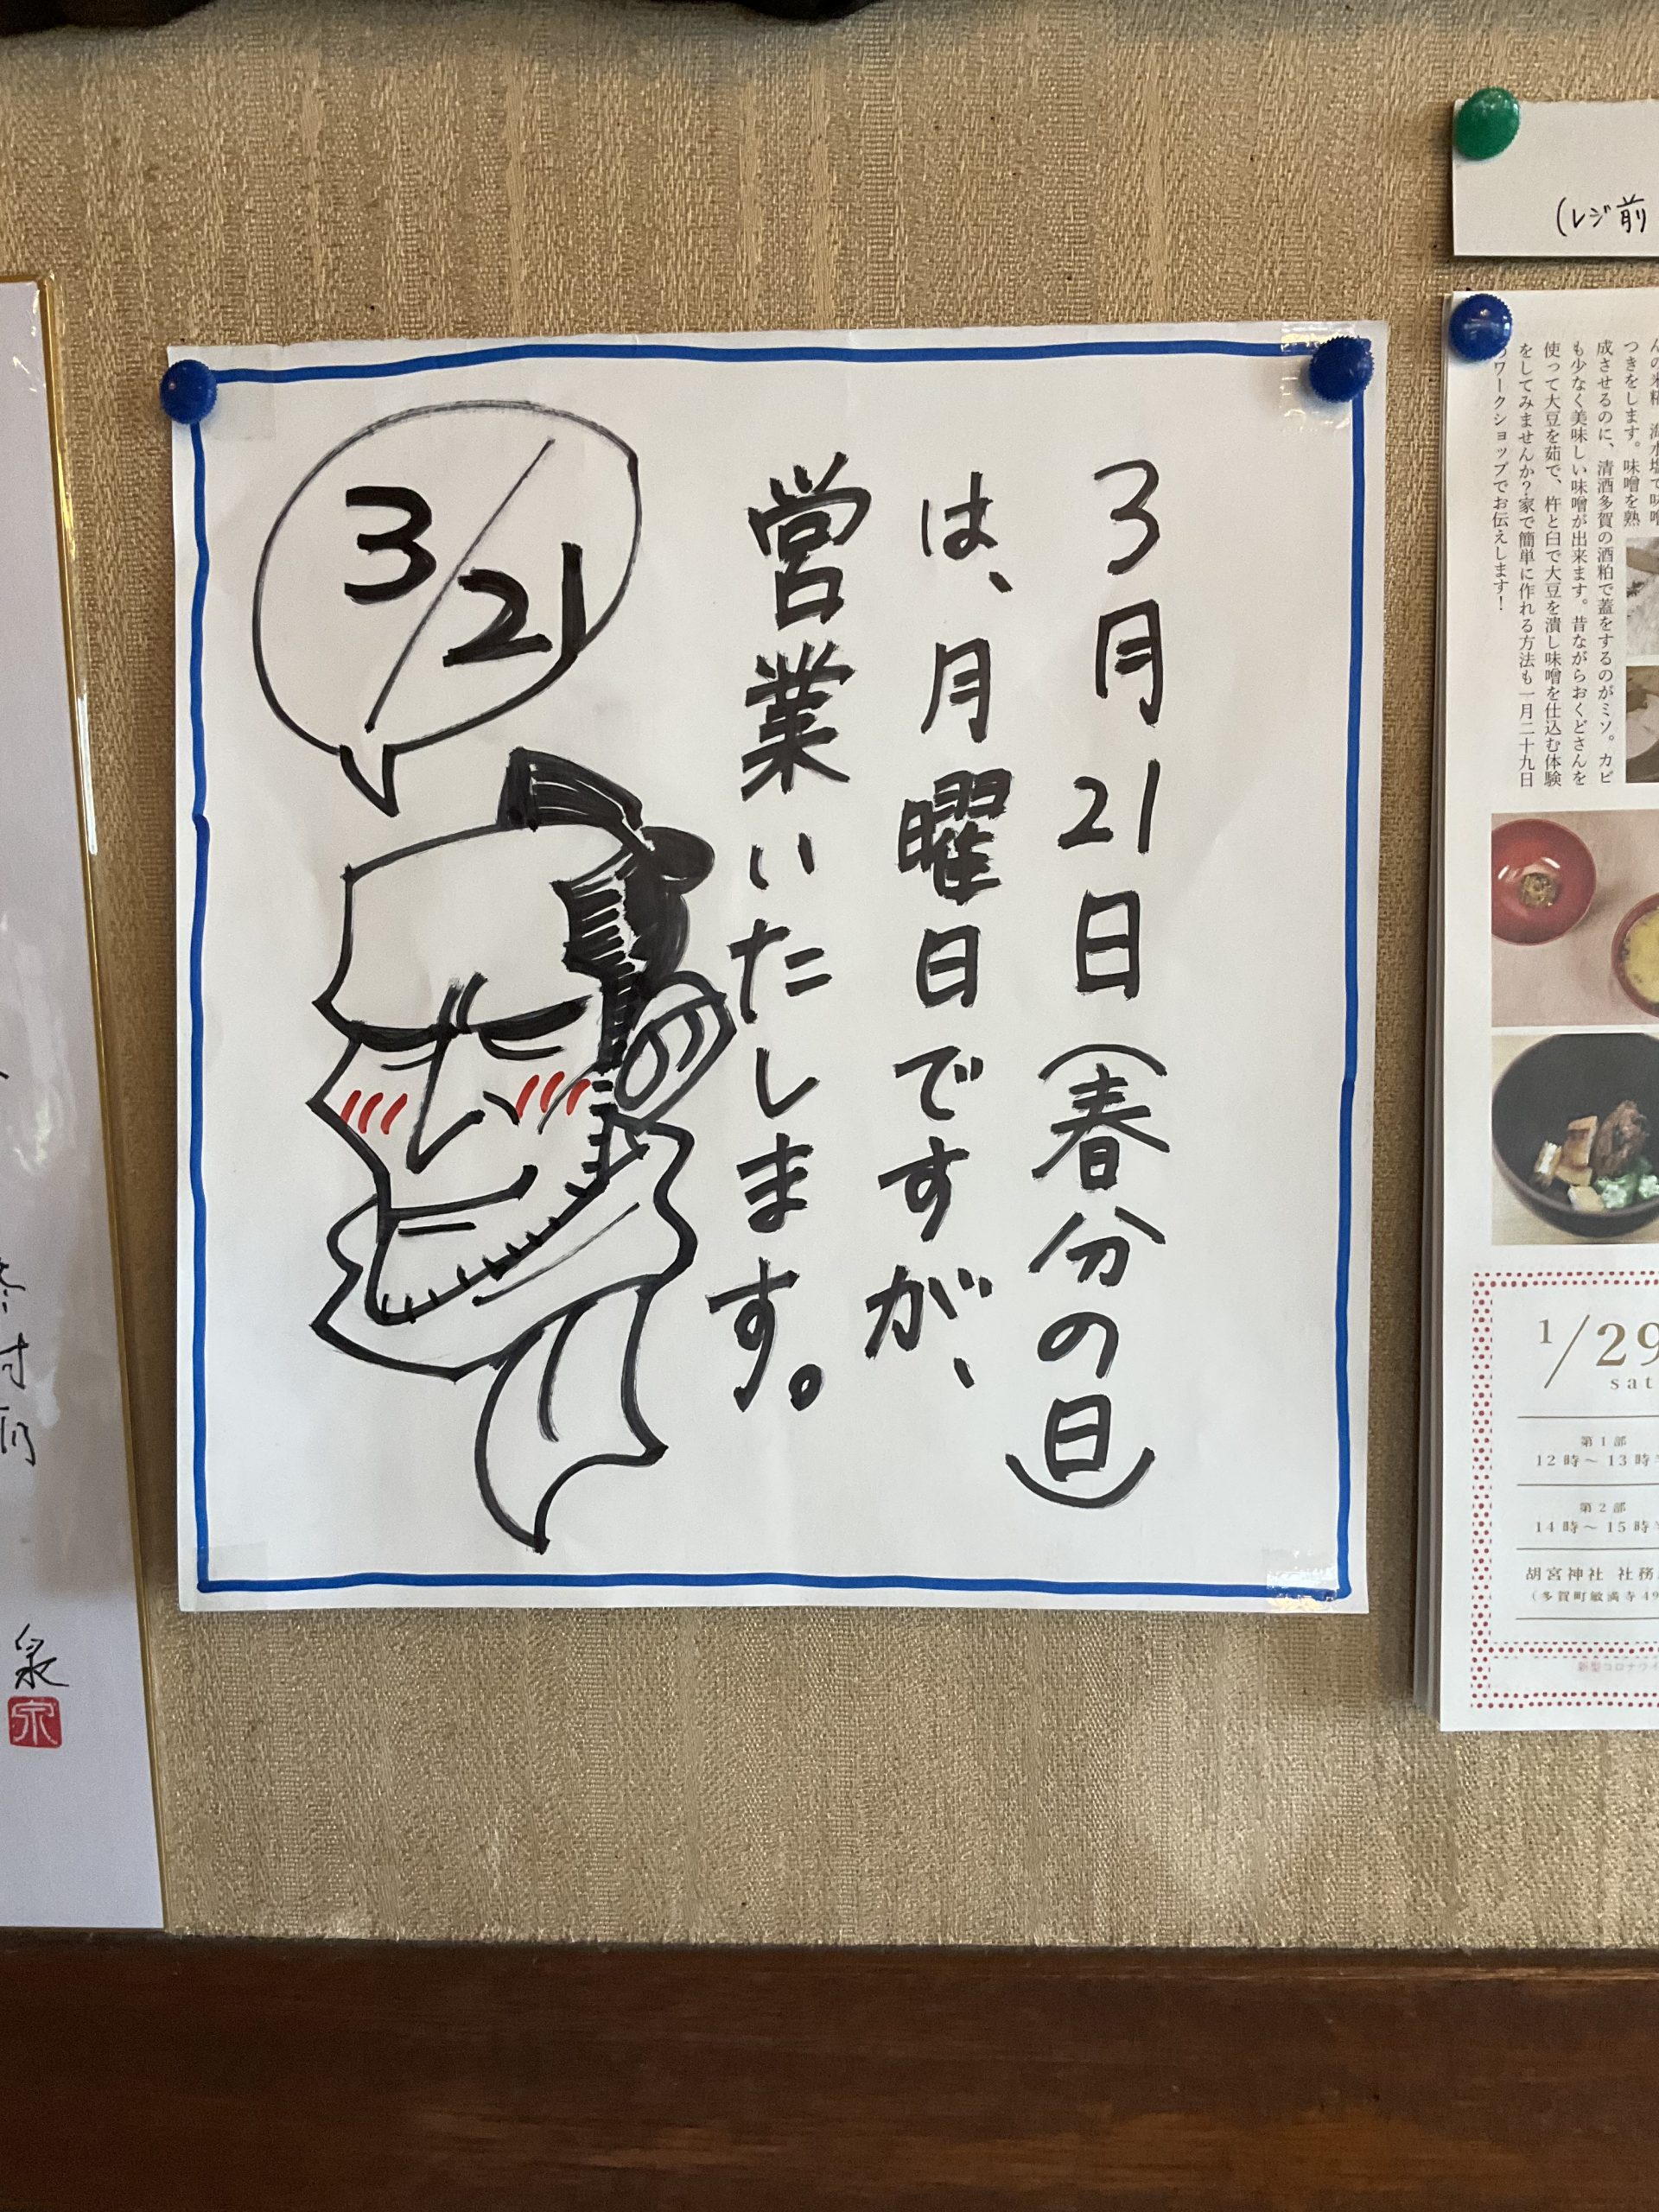 3月21日(春分の日)
は、月曜日ですが、
営業いたします。
3/21
(レジ前
つきをします。味噌を熟
成させるのに、清酒多賀の酒粕で蓋をするのがミソ。カビ
も少なく美味しい味噌が出来ます。昔ながらおくどさんを
使って大豆を茹で、杵と臼で大豆を潰し味噌を仕込む体験
をしてみませんか?家で簡単に作れる方法も一月二十九日
ワークショップでお伝えします!
1/29
sat
第1部
12時〜13時
第2部
14時〜15時
胡宮神社 社務
(多賀町敏満寺49
泉